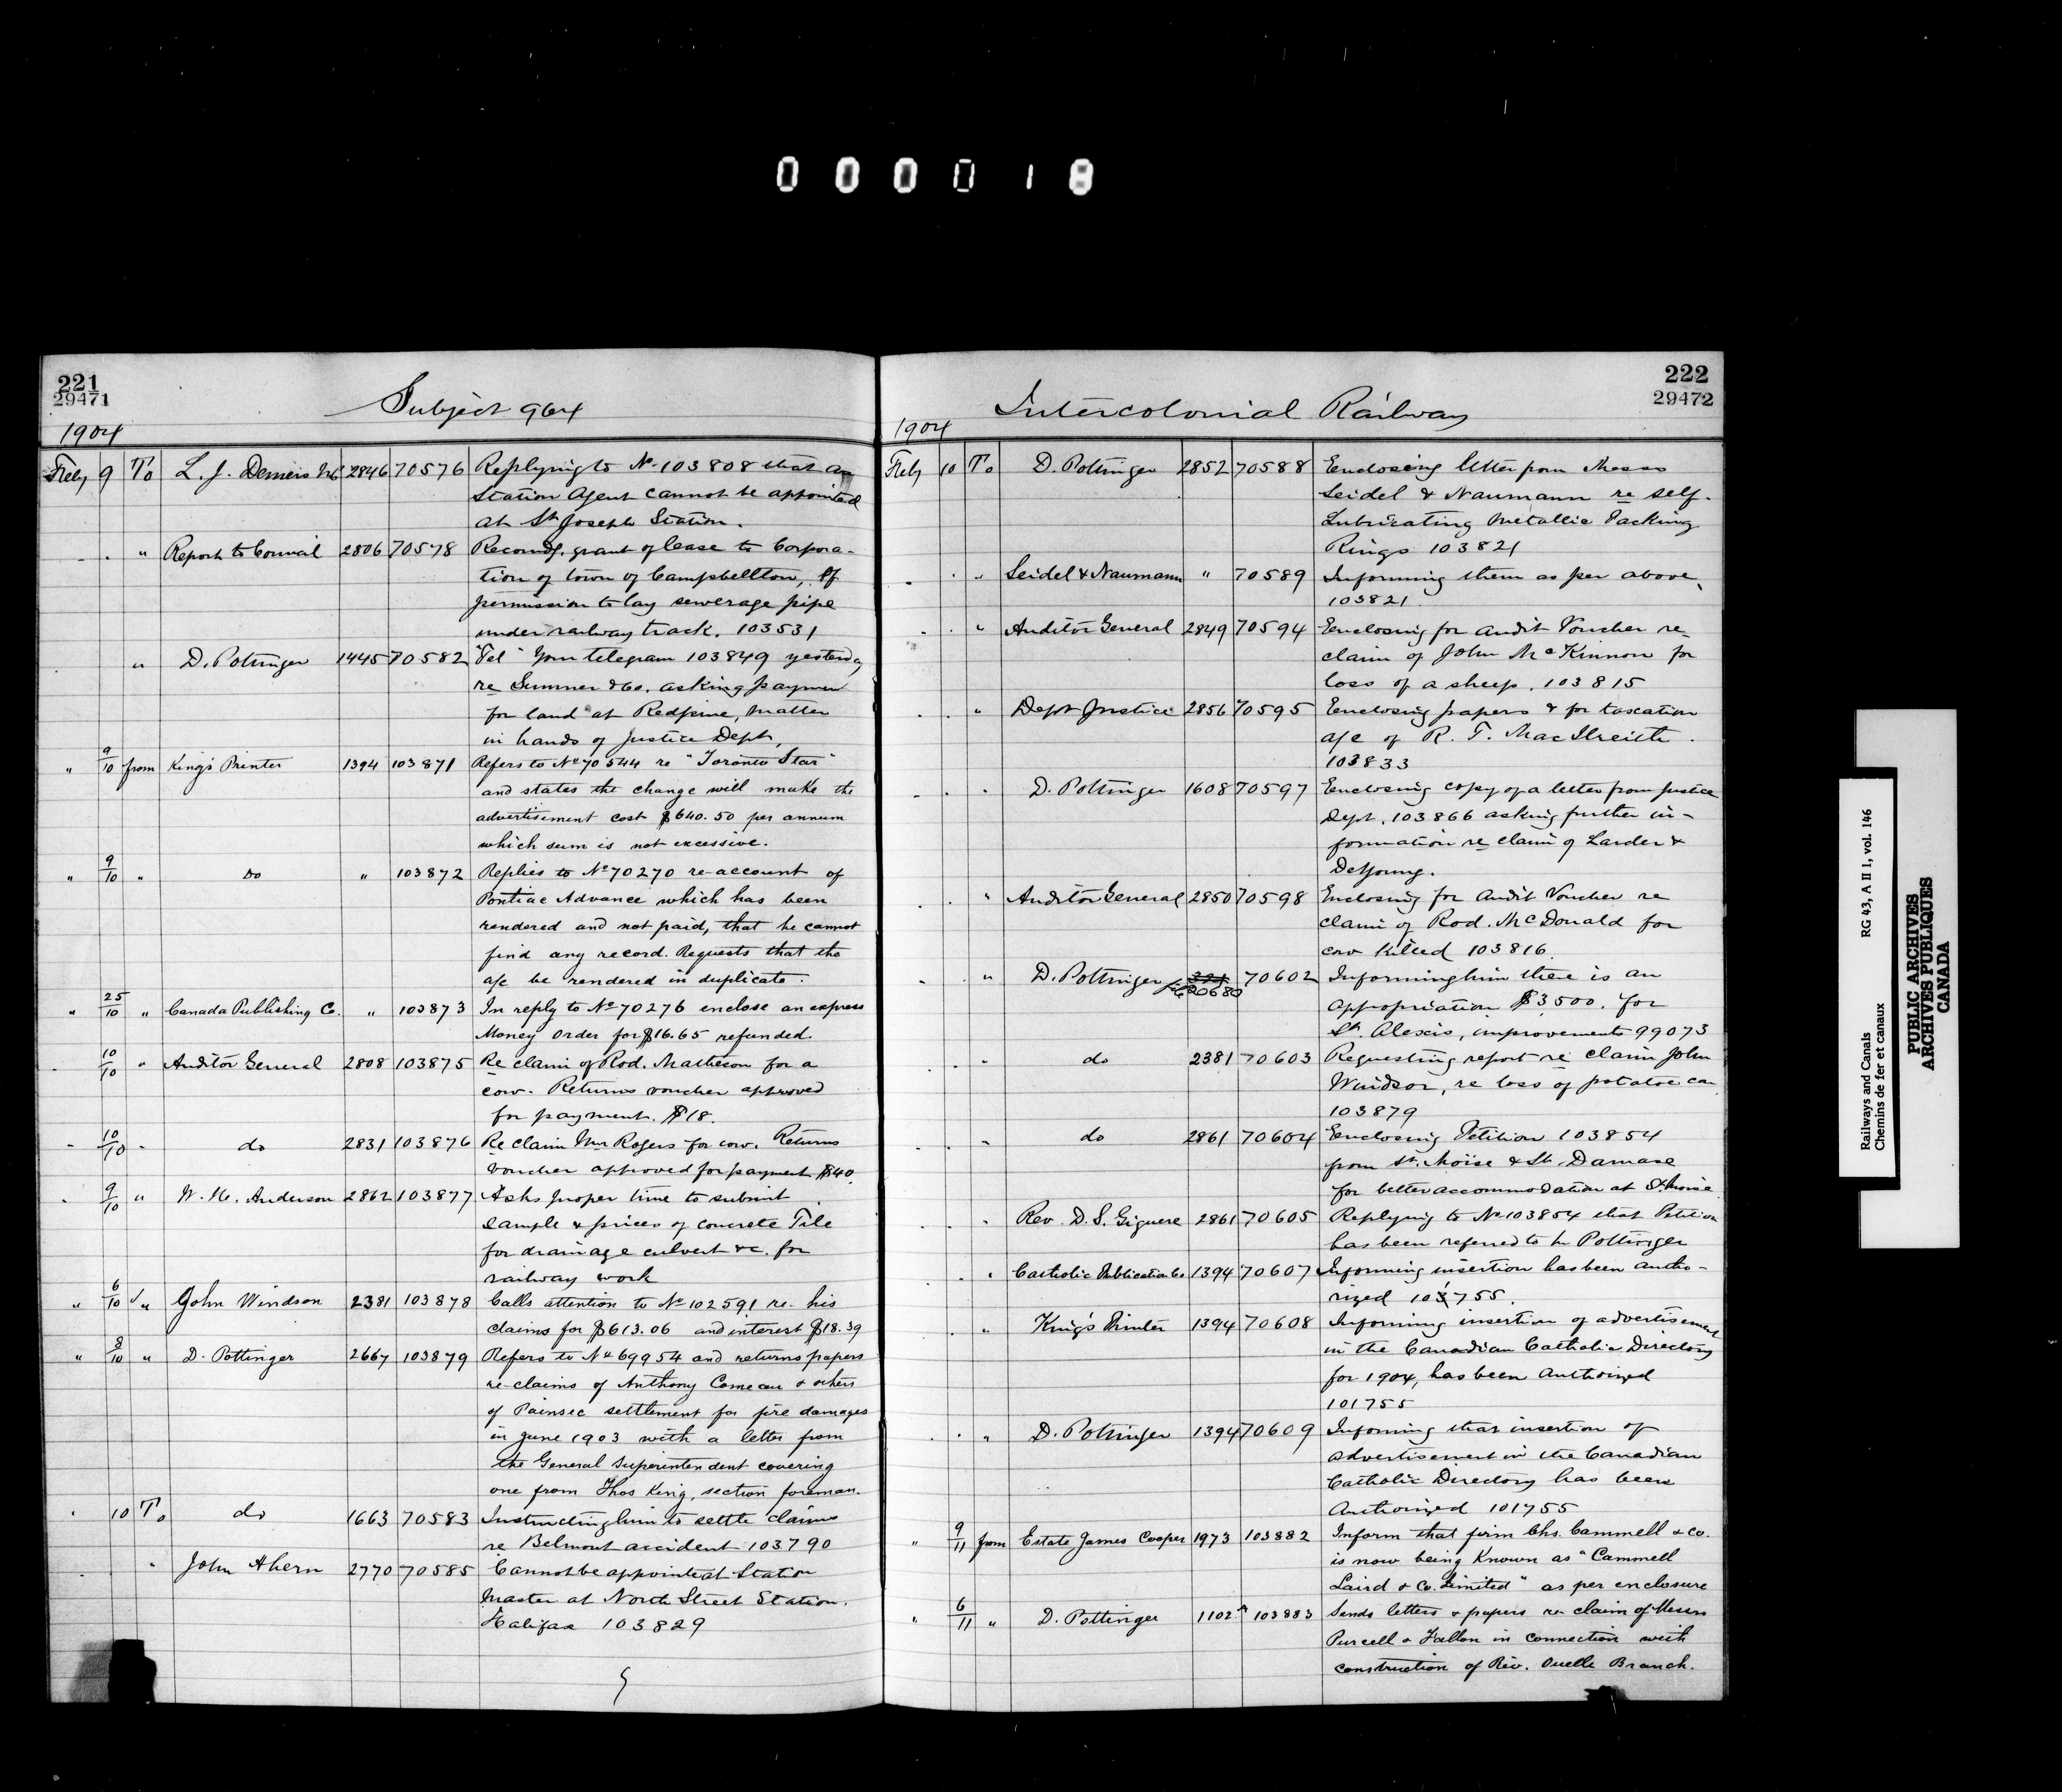 000018
221
29471
Subject 964
1904
Feby 9 To L. J. Demers 2846 70576 Replying to No 103808 that a
Station Agent cannot be appointed
at St Joseph Station.
" Report to Council 2806 70578 Recomdg. grant of lease to Corpora-
tion of town of Campbellton, of
permission to lay sewerage pipe
under railway track. 103531
" D. Pottinger 1445 70582 "Tel" Your telegram 103849 yesterday
re Sumner & Co. asking payment
for land at Redpine, matter
in hands of Justice Dept,
" 9/10 from King's Printer 1394 103871 Refers to No 70544 re "Toronto Star"
and states the change will make the
advertisement cost $640.50 per annum
which sum is not excessive.
" 9/10 " Do " 103872 Replies to No 70270 re account of
Pontiac Advance which has been
rendered and not paid, that he cannot
find any record. Requests that the
a/c be rendered in duplicate.
" 25/10 " Canada Publishing Co. " 103873 In reply to No 70276 enclose an express
Money Order for $16.65 refunded.
10/10 " Auditor General 2808 103875 Re claim of Rod. Matheson for a
cow. Returns voucher approved
for payment. $18.
10/10 " do 2831 103876 Re claim Mrs Rogers for cow. Returns
voucher approved for payment $40.
9/10 " W. H. Anderson 2862 103877 Asks proper time to submit
sample & prices of concrete Tile
for drainage culvert &c. for
railway work
" 6/10 " John Windson 2381 103878 Calls attention to No 102591 re his
claims for $613.06 and interest $18.39
" 8/10 " D. Pottinger 2667 103879 Refers to No 69954 and returns papers
re claims of Anthony Comeau & others
of Painsec settlement for fire damages
in June 1903 with a letter from
the General Superintendent covering
one from Thos King, section foreman.
10 To do 1663 70583 Instructing him to settle claims
re Belmont accident 103790
" John Ahern 2770 70585 Cannot be appointed Station
Master at North Street Station.
Halifax 103829
222
29472
Intercolonial Railway
1904
Feby 10 To D. Pottinger 2852 70588 Enclosing letter from Messrs
Seidel & Naumann re self-
Lubricating Metallic Packing
Rings 103821
" Seidel & Naumann " 70589 Informing them as per above,
103821.
" Auditor General 2849 70594 Enclosing for audit Voucher re
claim of John McKinnon for
loss of a sheep. 103815
" Dept Justice 2856 70595 Enclosing papers & for taxation
a/c of R. T. MacIlreith.
103833
" D. Pottinger 1608 70597 Enclosing copy of a letter from Justice
Dept. 103866 asking further in-
formation re claim of Larder &
DeYoung.
" Auditor General 2850 70598 Enclosing for Audit Voucher re
claim of Rod. McDonald for
cow killed 103816.
" D. Pottinger 70602 Informing him there is an
appropriation $3500. for
St. Alexis, improvements 99073
" do 2381 70603 Requesting report re claim John
Windsor, re loss of potatoe car
103879
" do 2861 70604 Enclosing Petition 103854
from St. Moise & St. Damase
for better accommodation at St. Moise
" Rev. D. S. Giguere 2861 70605 Replying to No 103854 that Petition
has been referred to Mr Pottinger
" Catholic Publication Co 1394 70607 Informing insertion has been autho-
rized 101755.
" King's Printer 1394 70608 Informing insertion of advertisement
in the Canadian Catholic Directory
for 1904, has been Authorized
101755
" D. Pottinger 1394 70609 Informing that insertion of
advertisement in the Canadian
Catholic Directory has been
Authorized 101755
" 9/11 from Estate James Cooper 1973 103882 Inform that firm Chs. Cammell & Co.
is now being known as "Cammell
Laird & Co. Limited" as per enclosure
" 6/11 " D. Pottinger 1102 103883 Sends letters & papers re claim of Messrs
Purcell & Fallon in connection with
construction of Riv. Ouelle Branch.
Railways and Canals RG 43, A II 1, vol. 146
Chemins de fer et canaux
PUBLIC ARCHIVES
ARCHIVES PUBLIQUES
CANADA